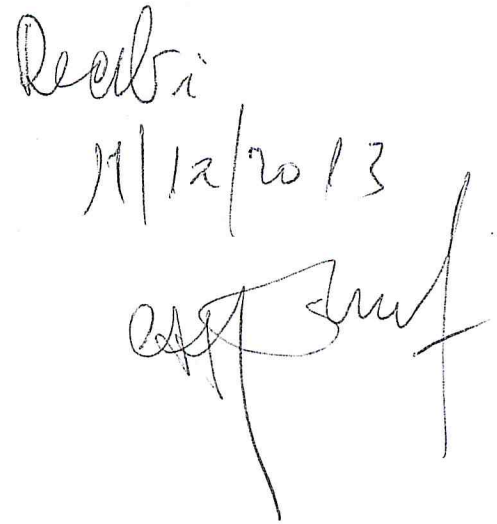 Recibi
11/12/2013